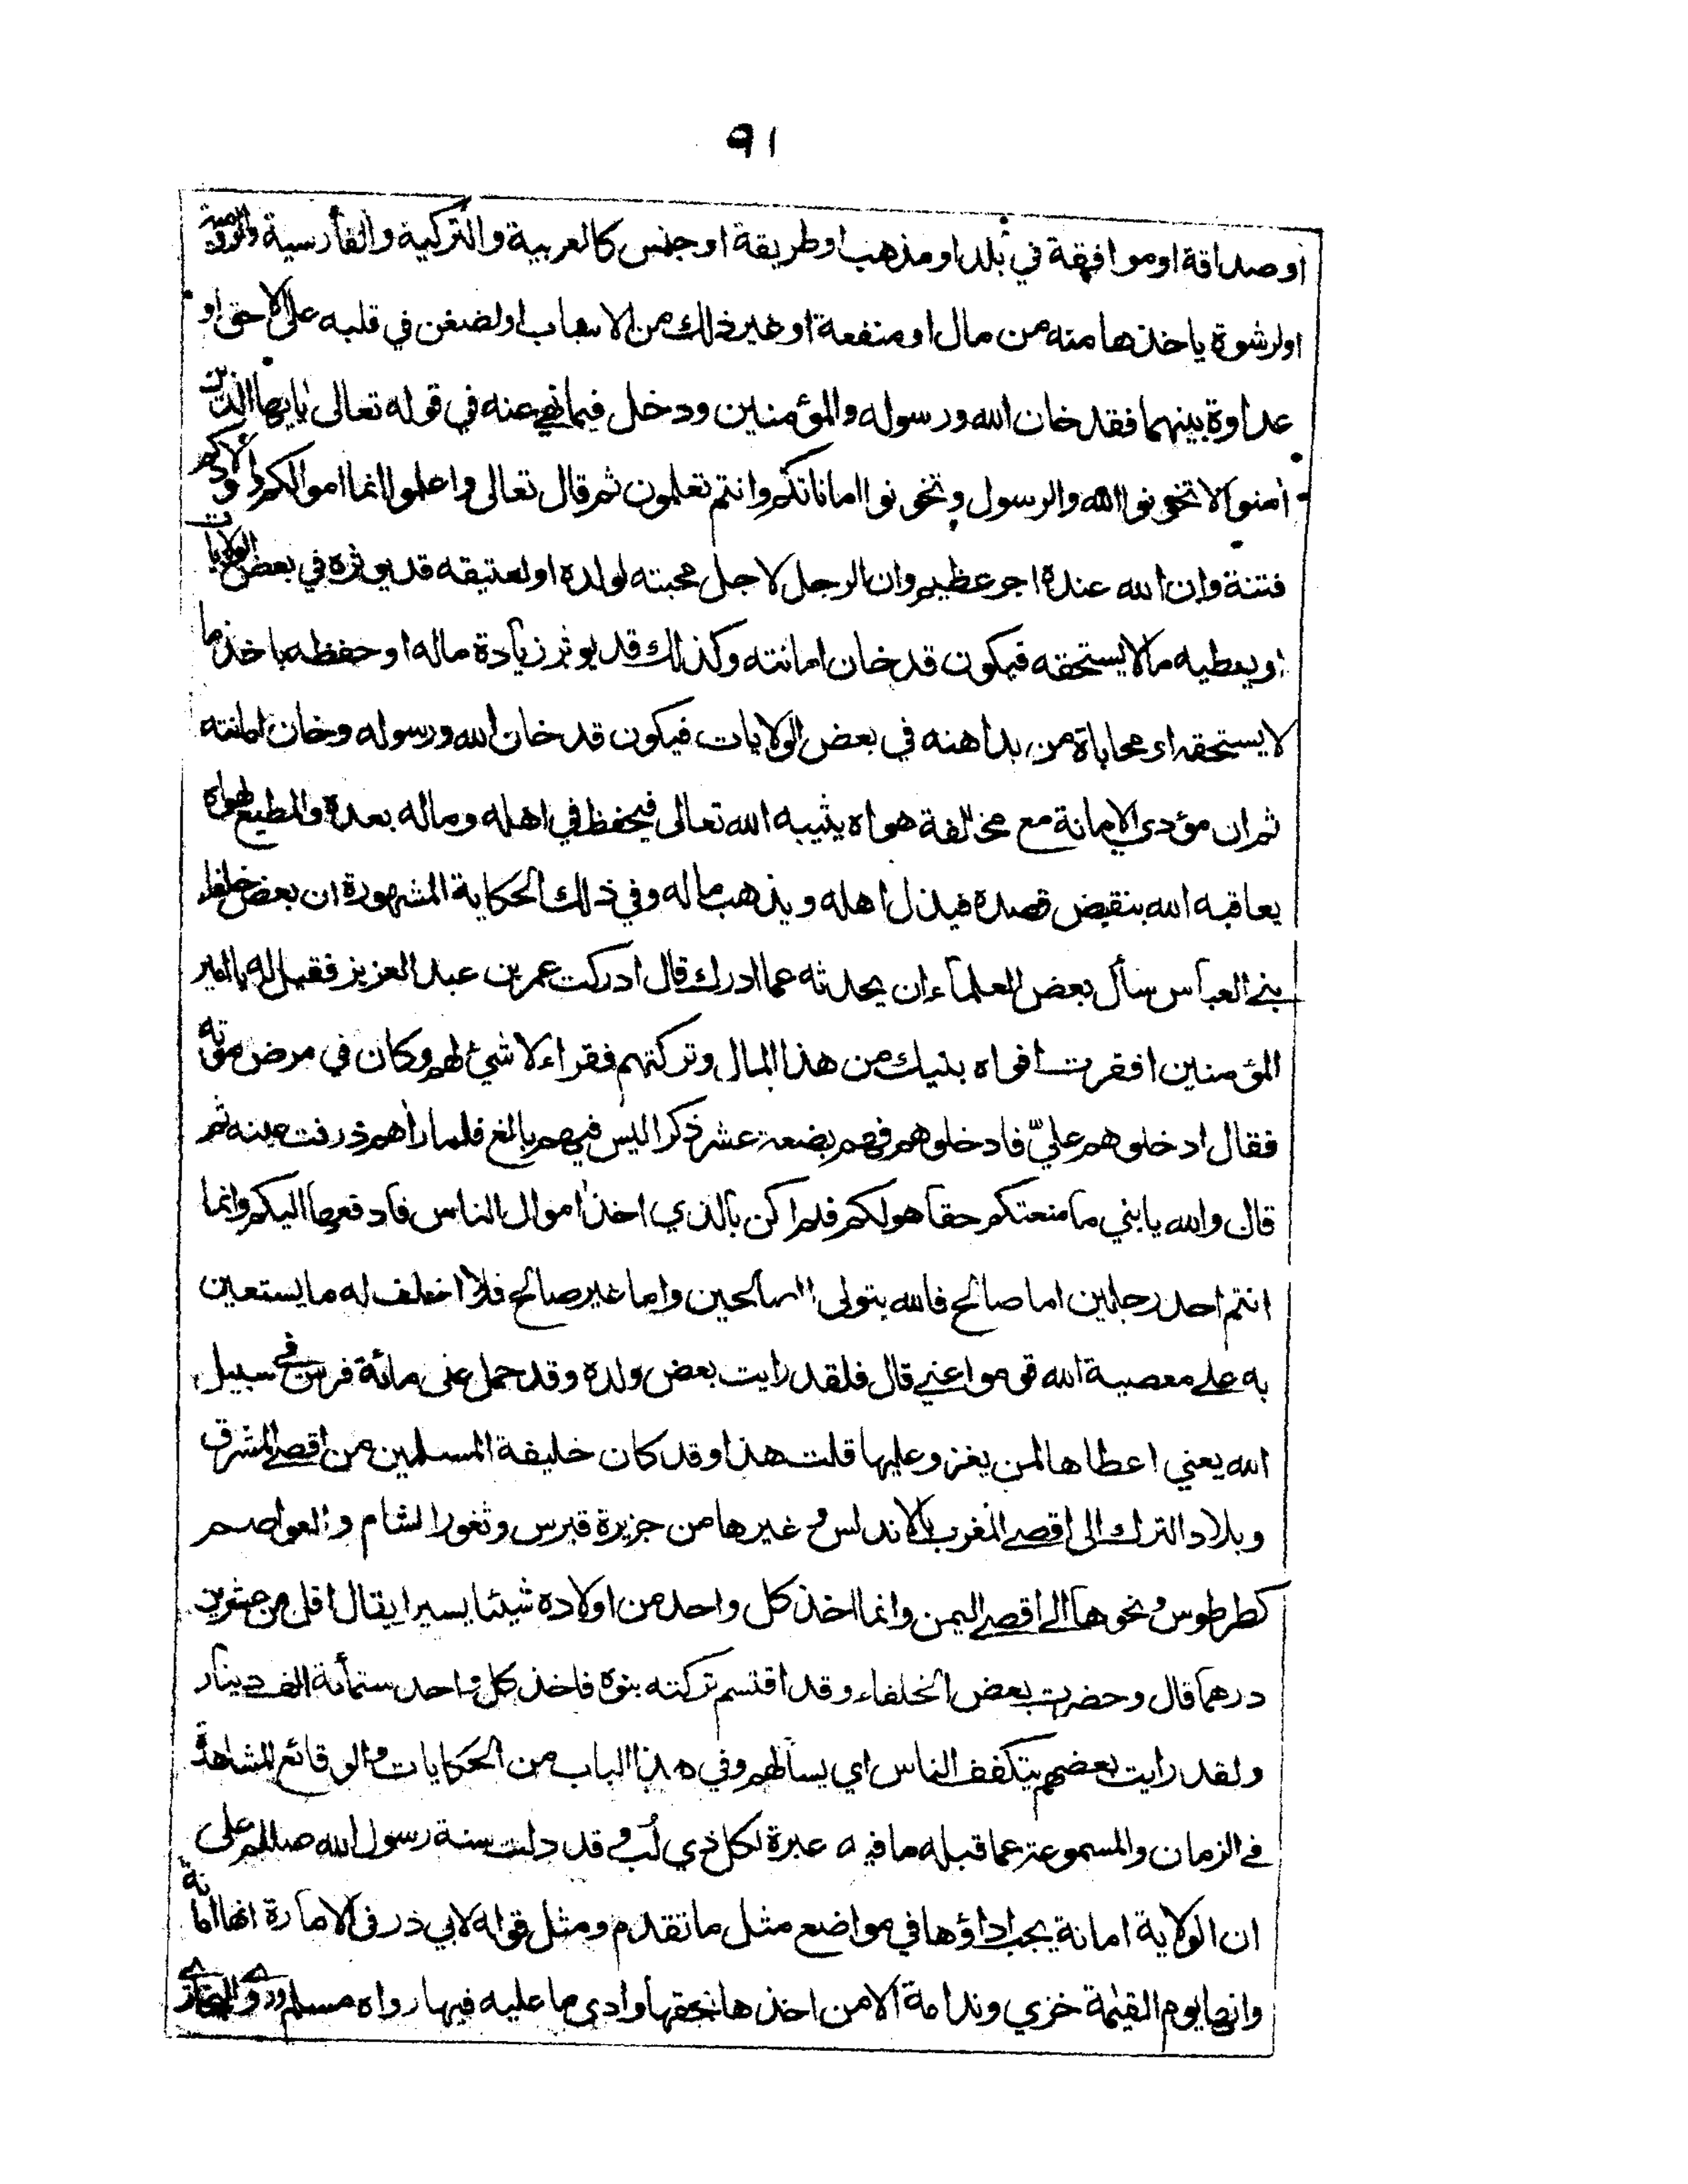 ٩١
او صداقة او موافقة في بلد او مذهب او طريقة او جنس كالعربية والتركية والفارسية والرومية
او لرشوة ياخذها منه من مال او منفعة او غير ذلك من الاسباب او لضغن في قلبه على الاحق او
عداوة بينهما فقد خان الله ورسوله والمؤمنين ودخل فيما نهي عنه في قوله تعالى يايها الذين
امنوا لا تخونوا الله والرسول وتخونوا اماناتكم وانتم تعلمون ثم قال تعالى واعلموا انما اموالكم واولادكم
فتنة وان الله عنده اجر عظيم وان الرجل لاجل محبته لولده او لعتيقه قد يوثره في بعض الولايات
او يعطيه ما لا يستحقه فيكون قد خان امانته وكذلك قد يوثر زيادة ماله او حفظه باخذ ما
لا يستحقه او محاباة من يداهنه في بعض الولايات فيكون قد خان الله ورسوله وخان امانته
ثم ان مؤدي الامانة مع مخالفة هواه يثيبه الله تعالى فيحفظ في اهله وماله بعده والمطيع لهواه
يعاقبه الله بنقيض قصده فيذل اهله ويذهب ماله وفي ذلك الحكاية المشهورة ان بعض خلفاء
بني العباس سأل بعض العلماء ان يحدثه عما ادرك قال ادركت عمر بن عبد العزيز فقيل له يا امير
المؤمنين افقرت افواه بنيك من هذا المال وتركتهم فقراء لا شئ لهم وكان في مرض موته
فقال ادخلوهم عليّ فادخلوهم فهم بضعة عشر ذكرا ليس فيهم بالغ فلما راهم ذرفت عينه ثم
قال والله يا بني ما منعتكم حقا هو لكم فلم اكن بالذي اخذ اموال الناس فادفعها اليكم وانما
انتم احد رجلين اما صالح فالله يتولى الصالحين واما غير صالح فلا اخلف له ما يستعين
به على معصية الله قوموا عني قال فلقد رايت بعض ولده وقد حمل على مائة فرس في سبيل
الله يعني اعطاها لمن يغزو عليها قلت هذا وقد كان خليفة المسلمين من اقصى المشرق
وبلاد الترك الى اقصى المغرب بالاندلس و غيرها من جزيرة قبرس وثغور الشام والعواصم
كطرطوس ونحوها الى اقصى اليمن وانما اخذ كل واحد من اولاده شيئا يسيرا يقال اقل من عشرين
درهما قال وحضرت بعض الخلفاء وقد اقتسم تركته بنوه فاخذ كل واحد ستمأة الف دينار
ولقد رايت بعضهم يتكفف الناس اي يسألهم وفي هذا الباب من الحكايات والوقائع المشاهدة
في الزمان والمسموعة عما قبله ما فيه عبرة لكل ذي لُب وقد دلت سنة رسول الله صللم على
ان الولاية امانة يجب اداؤها في مواضع مثل ما تقدم ومثل قوله لابي ذر في الامارة انها امانة
وانها يوم القيمة خزي وندامة الا من اخذها بحقها وادى ما عليه فيها رواه مسلم وروى البخاري